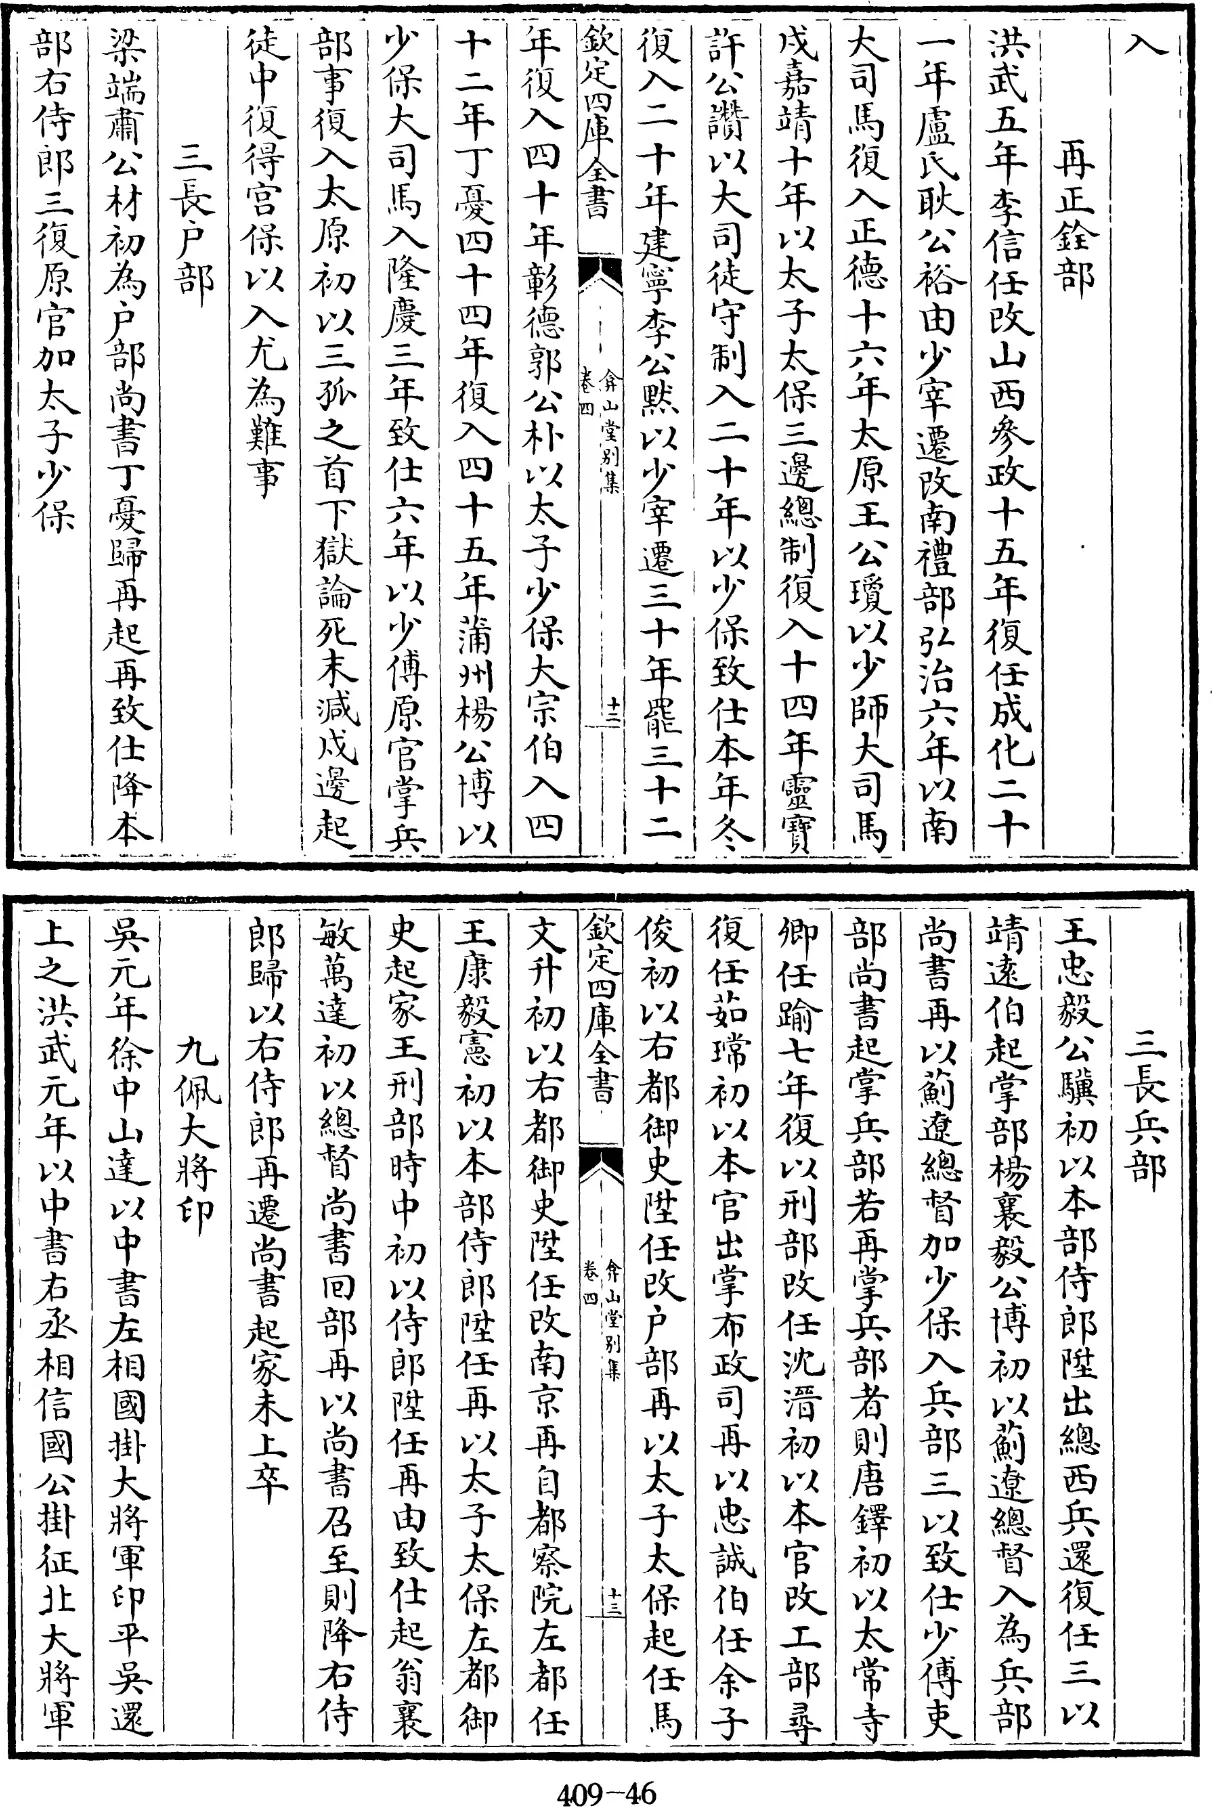 入
再正銓部
洪武五年李信任改山西參政十五年復任成化二十
一年盧氏耿公裕由少宰遷改南禮部弘治六年以南
大司馬復入正德十六年太原王公瓊以少師大司馬
戍嘉靖十年以太子太保三邊總制復入十四年靈寶
許公讚以大司徒守制入二十年以少保致仕本年冬
復入二十年建寧李公默以少宰遷三十年罷三十二
欽定四庫全書
弇山堂別集
卷四
十二
年復入四十年彰德郭公朴以太子少保大宗伯入四
十二年丁憂四十四年復入四十五年蒲州楊公博以
少保大司馬入隆慶三年致仕六年以少傅原官掌兵
部事復入太原初以三孤之首下獄論死末減戍邊起
徒中復得宮保以入尤為難事
三長戶部
梁端肅公材初為戶部尚書丁憂歸再起再致仕降本
部右侍郎三復原官加太子少保
三長兵部
王忠毅公驥初以本部侍郎陞出總西兵還復任三以
靖遠伯起掌部楊襄毅公博初以薊遼總督入為兵部
尚書再以薊遼總督加少保入兵部三以致仕少傅吏
部尚書起掌兵部若再掌兵部者則唐鐸初以太常寺
卿任踰七年復以刑部改任沈溍初以本官改工部尋
復任茹瑺初以本官出掌布政司再以忠誠伯任余子
俊初以右都御史陞任改戶部再以太子太保起任馬
欽定四庫全書
弇山堂別集
卷四
十三
文升初以右都御史陞任改南京再自都察院左都任
王康毅憲初以本部侍郎陞任再以太子太保左都御
史起家王刑部時中初以侍郎陞任再由致仕起翁襄
敏萬達初以總督尚書回部再以尚書召至則降右侍
郎歸以右侍郎再遷尚書起家未上卒
九佩大將印
吳元年徐中山達以中書左相國掛大將軍印平吳還
上之洪武元年以中書右丞相信國公掛征北大將軍
409-46